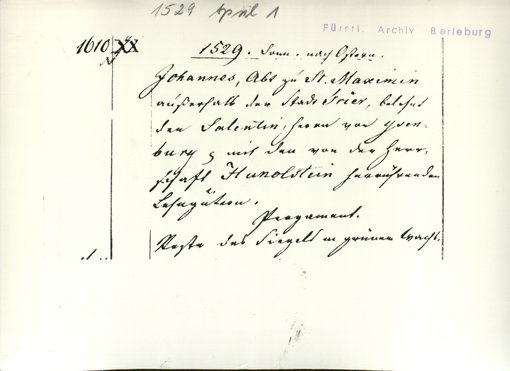 1529 April 1
Fürstl. Archiv Berleburg
1610 XX
1529. Donn. nach Ostern.
Johannes, Abt zu St. Maximin
außerhalb der Stadt Trier, belehnt
den Salentin, Herrn von Ysen-
burg mit den von der Herr-
schaft Hunoldstein herrührenden
Lehngütern.
Pergament.
Reste des Siegels in grünem Wachs.